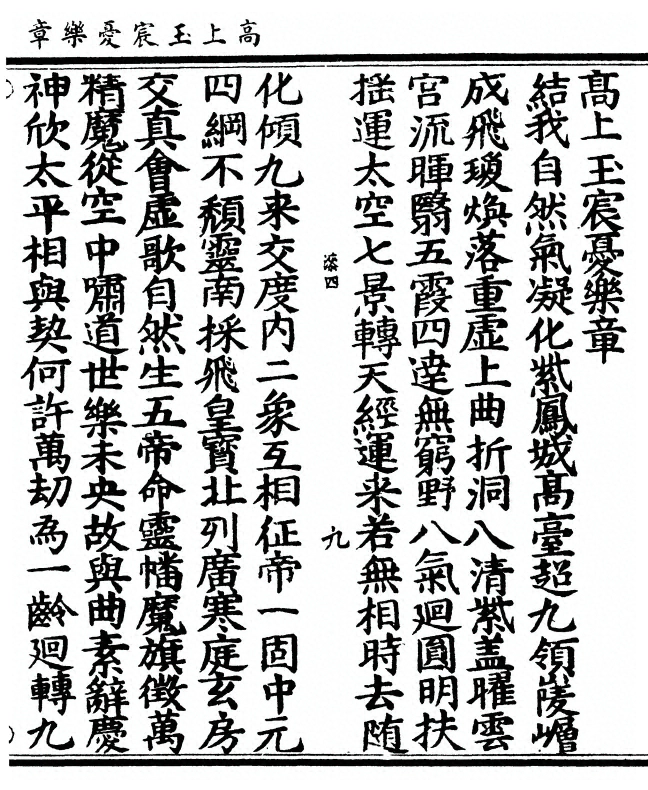 高上玉宸憂樂章
髙上玉宸憂樂章
結我自然氣凝化紫鳳城髙臺超九領崚嶒
成飛瓊煥落重虛上曲折洞八清紫盖曜雲
宮流暉翳五霞四達無窮野八氣廻圓明扶
揺運太空七景轉天經運来若無相時去随
染四
九
化傾九来交度内二象互相征帝一固中元
四綱不頹靈南採飛皇寳北列廣寒庭玄房
交真會虛歌自然生五帝命靈幡魔旗徵萬
精魔從空中嘯道世樂未央故與曲素辭慶
神欣太平相與契何許萬刧為一齡廻轉九